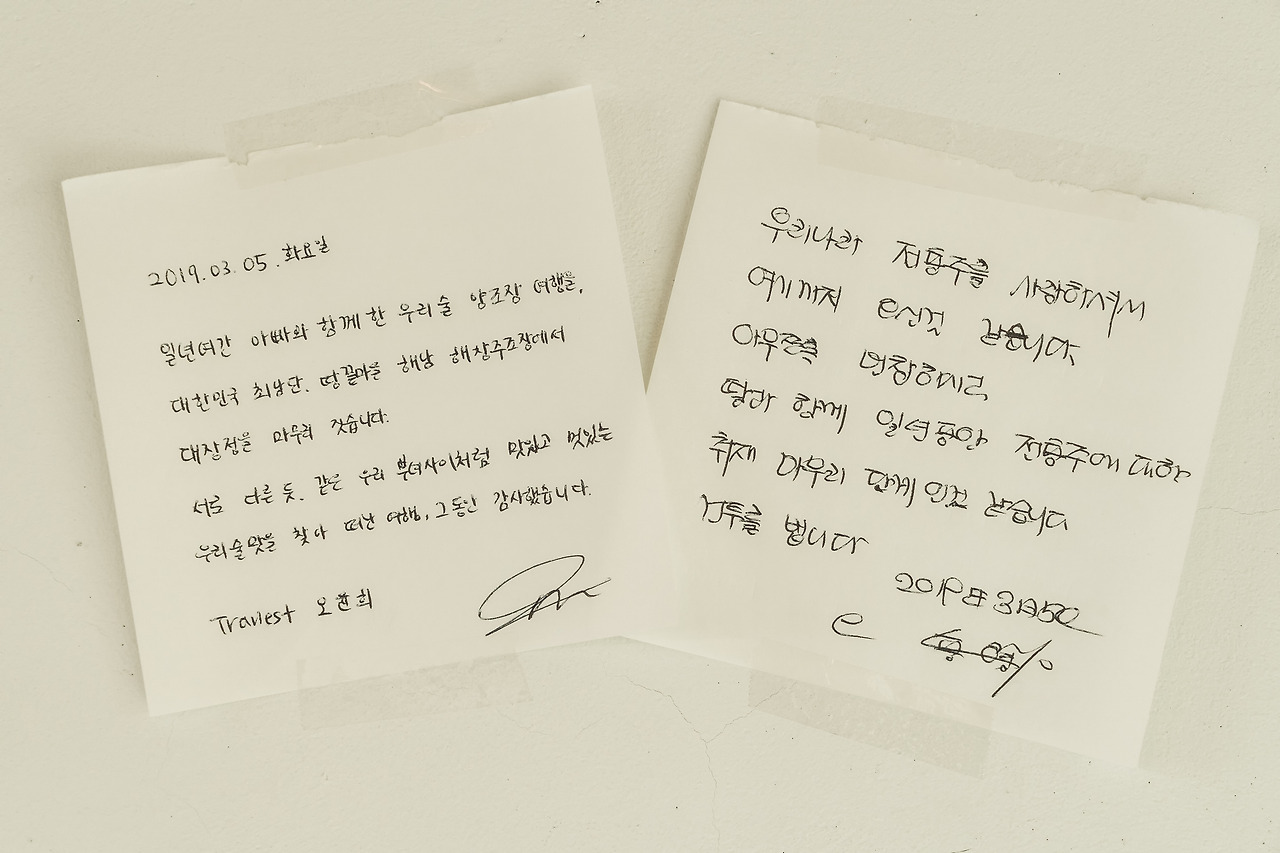 2019. 03. 05. 화요일
일년여간 아빠와 함께 한 우리술 양조장 여행을,
대한민국 최남단, 땅끝마을 해남 해창주조장에서
대장정을 마무리 짓습니다.
서로 다른 듯, 같은 우리 부녀사이처럼 맛있고 멋있는
우리술맛을 찾아 떠난 여행, 그동안 감사했습니다.
Traviest 오윤희
우리나라 전통주를 사랑하셔서
여기까지 오신것 같습니다.
아무쪼록 번창하시고
딸과 함께 일년동안 전통주에 대한
취재 마무리 단계 인것 같습니다
건투를 빕니다
2019년 3월 5일